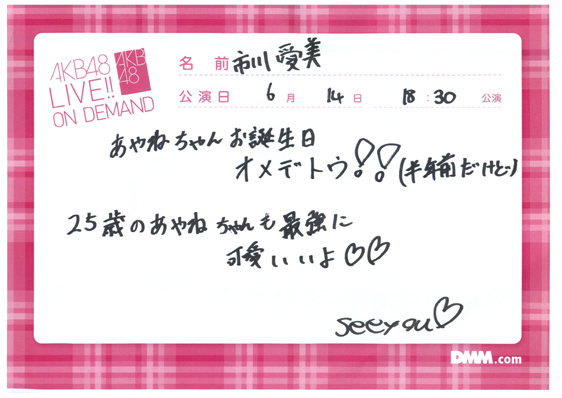 AKB48
LIVE!!
ON DEMAND
AKB
48
名前 市川愛美
公演日 6月 14日 18:30 公演
あやねちゃんお誕生日
オメデトウ!!(半年前だけど)
25歳のあやねちゃんも最強に
可愛いいよ♡♡
seeyou♡
DMM.com